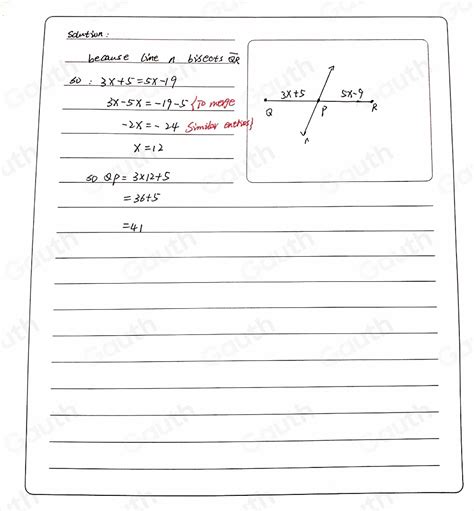 Solution:
because line n bisects QR
so : 3x+5=5x-19
3x-5x=-19-5 {To merge
-2x=-24 Similar entries}
x=12
so QP=3x12+5
=36+5
=41
3x+5 5x-9
Q P R
n
Gauth